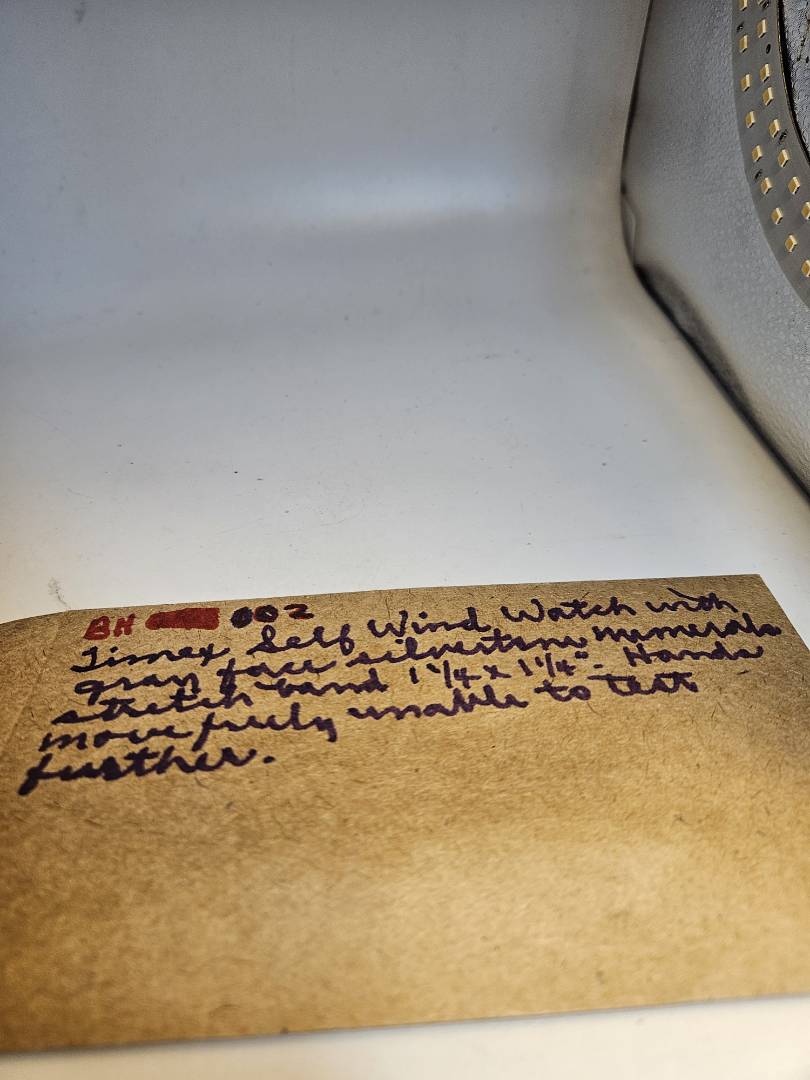 BH 002
Timex Self Wind Watch with
gray face silvertone numerals
stretch band 1 1/4 x 1 1/4". Hands
move freely unable to test
further.